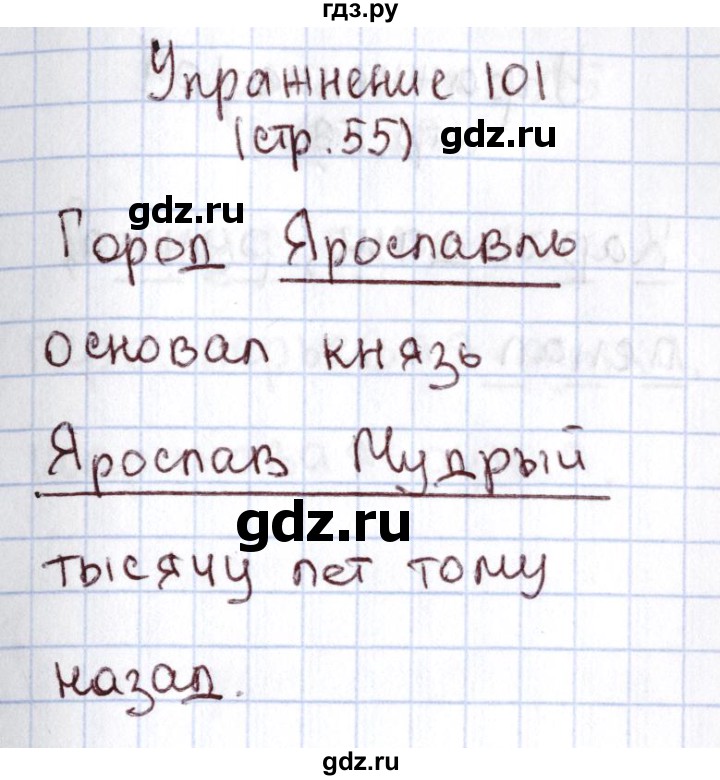 гдз.ру
Упражнение 101
(стр. 55)
gdz.ru
gdz.ru
Город Ярославль
основал князь
Ярослав Мудрый
gdz.ru
тысячу лет тому
назад.
gdz.ru